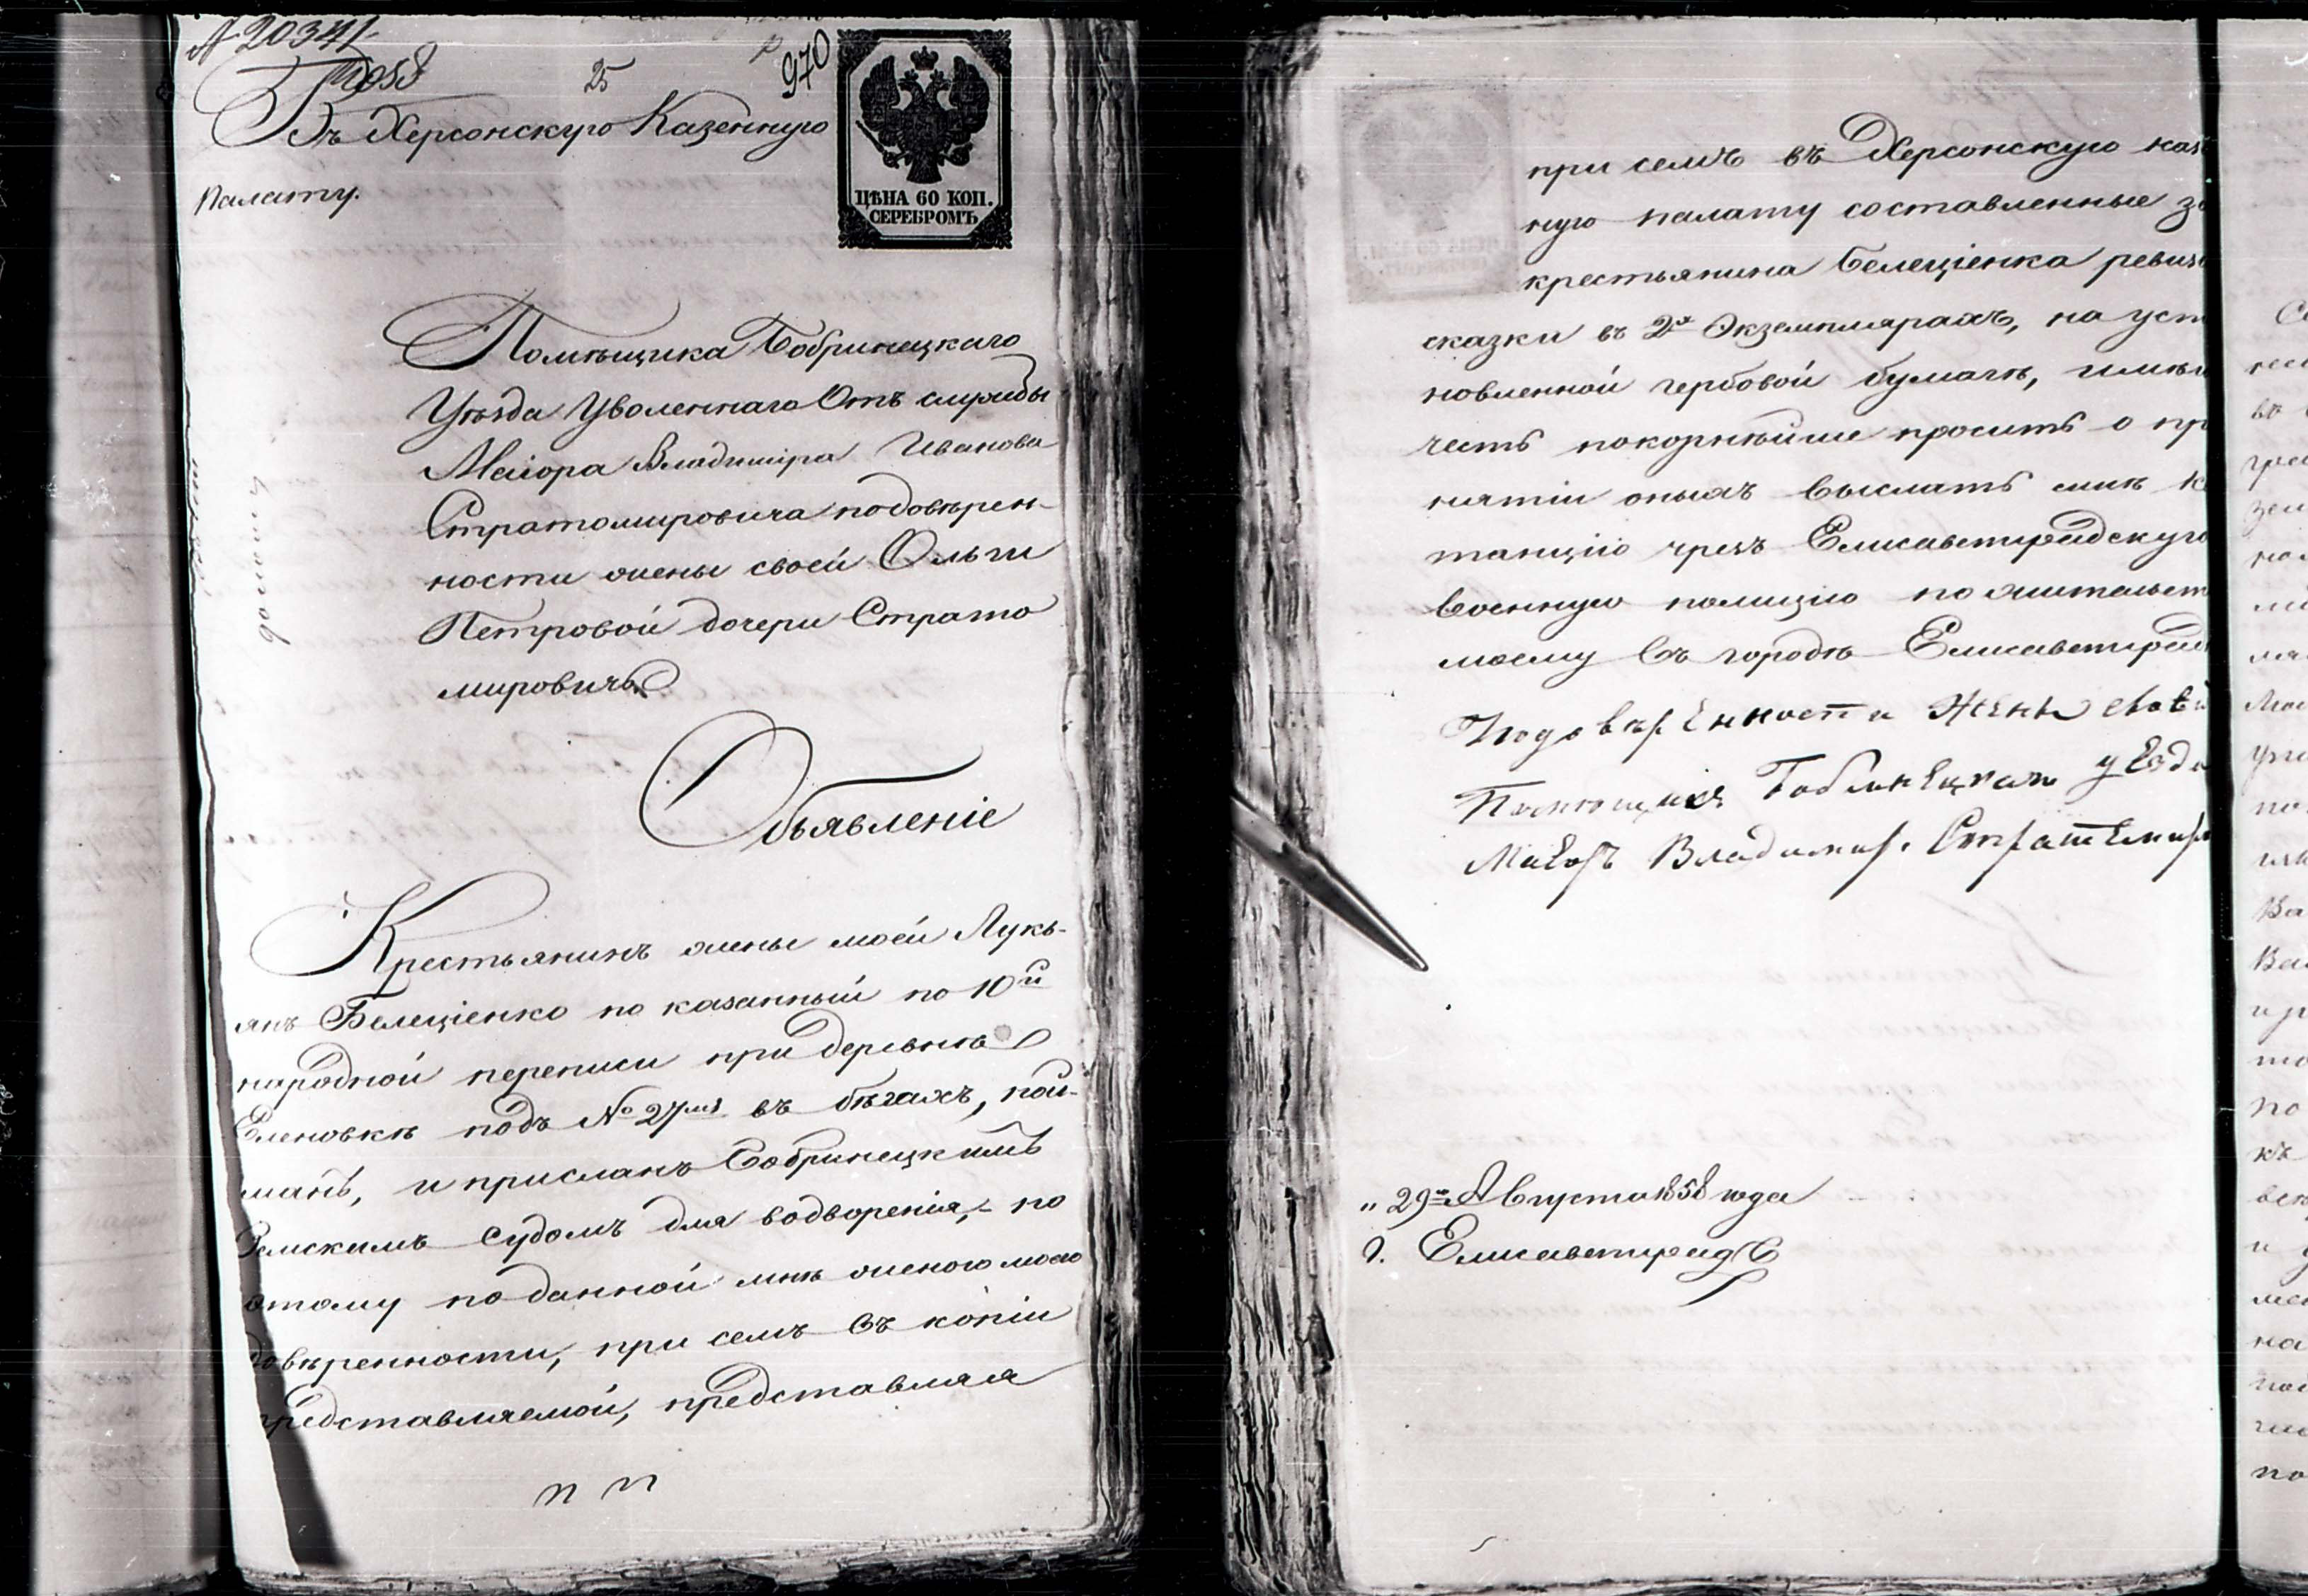 20341
25
970
Въ Херсонскую Казенную
Палату.
ЦѢНА 60 КОП.
СЕРЕБРОМЪ
Помѣщика Бобринецкаго
Уѣзда Уволеннаго Отъ службы
Маіора Владиміра Иванова
Стратомировича по довѣрен-
ности жены своей Ольги
Петровой дочери Страто
мировичъ
Объявленіе
Крестьянинъ жены моей Лукь-
янъ Белеціенко по казанный по 10й
народной переписи при деревнѣ
Еленовкѣ подъ № 27мъ въ бѣгахъ, пой-
манъ, и присланъ Бобринецкимъ
Земскимъ Судомъ для водворенія, по
этому по данной мнѣ женою моею
довѣренности, при семъ въ копіи
представляемой, представляя
при семъ въ Херсонскую каз
ную палату составленные за
крестьянина Белеціенка ревиз
сказки въ 2х Экземплярахъ, на уст
новленной гербовой бумагѣ, имѣю
честь покорнѣйше просить о пр
нятіи оныхъ выслать мнѣ к
танцію чрезъ Елисаветградскую
военную полицію по жительст
моему въ городѣ Елисаветград
По довѣренности жены своей
Помѣщикъ Бобринецкаго уезда
Маіоръ Владимир. Стратемир
„ 29го Августа 1858 года
Г. Елисаветградъ